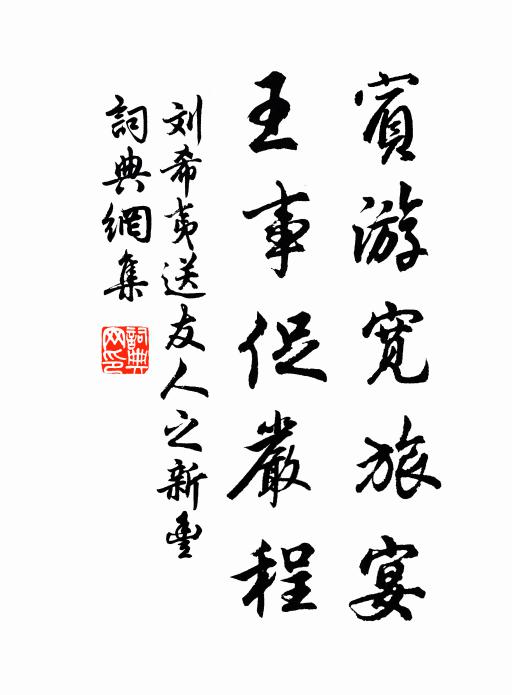 賓游寬旅宴
王事促嚴程
刘希夷送友人之新豐
詞典網集
詞典
网印